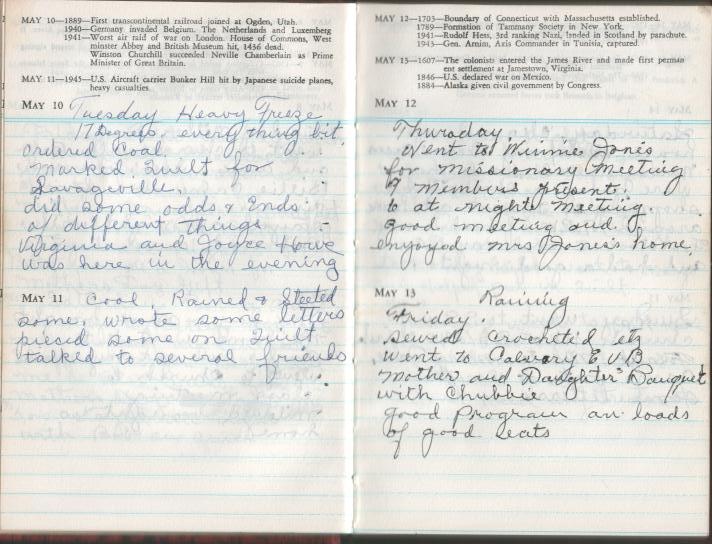 MAY 10—1889—First transcontinental railroad joined at Ogden, Utah.
1940—Germany invaded Belgium. The Netherlands and Luxemberg
1941—Worst air raid of war on London. House of Commons, West
minster Abbey and British Museum hit, 1436 dead.
Winston Churchill succeeded Neville Chamberlain as Prime
Minister of Great Britain.
MAY 11—1945—U.S. Aircraft carrier Bunker Hill hit by Japanese suicide planes,
heavy casualties.
MAY 10
Tuesday Heavy Freeze
17 Degrees, every thing bit.
ordered Coal.
Marked Quilt for
Savageville.
did some odds & Ends
of different things
Virginia and Joyce Howe
was here in the evening
MAY 11 Cool, Rained & Sleeted
some, wrote some letters
piecd some on Quilt
talked to several friends.
MAY 12—1703—Boundary of Connecticut with Massachusetts established.
1789—Formation of Tammany Society in New York.
1941—Rudolf Hess, 3rd ranking Nazi, landed in Scotland by parachute.
1943—Gen. Arnim, Axis Commander in Tunisia, captured.
MAY 13—1607—The colonists entered the James River and made first perman
ent settlement at Jamestown, Virginia.
1846—U.S. declared war on Mexico.
1884—Alaska given civil government by Congress.
MAY 12
Thursday
Went to Winnie Jones
for Missionary Meeting
9 Members present.
6 at night Meeting.
good meeting and
enjoyed Mrs Jones's home.
MAY 13 Raining
Friday.
sewed crochet'd etz
went to Calvary E U B
Mother and Daughter Banquet
with Chubbie
good Program an loads
of good Eats